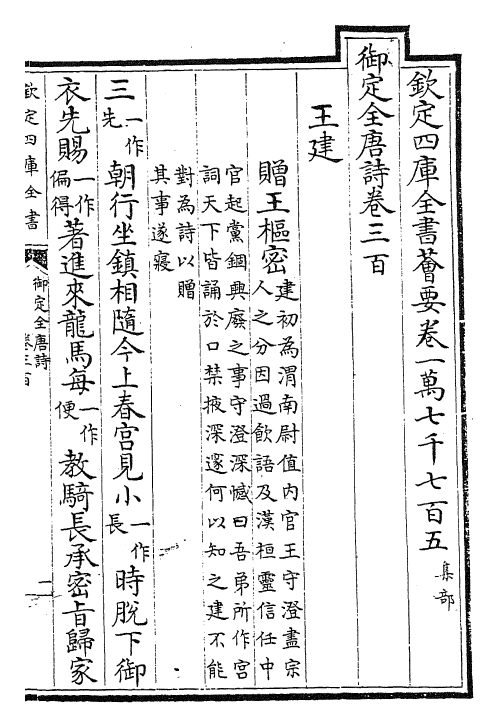 欽定四庫全書薈要卷一萬七千七百五 集部
御定全唐詩卷三百
王建
贈王樞密 建初為渭南尉值内官王守澄盡宗
人之分因過飲語及漢桓靈信任中
官起黨錮興廢之事守澄深憾曰吾弟所作宮
詞天下皆誦於口禁掖深邃何以知之建不能
對為詩以贈
其事遂寢
三 一作先 朝行坐鎮相隨今上春宮見小 一作長 時脫下御
衣先賜 一作偏得 著進來龍馬每 一作便 教騎長承密旨歸家
欽定四庫全書
御定全唐詩
卷三百
一